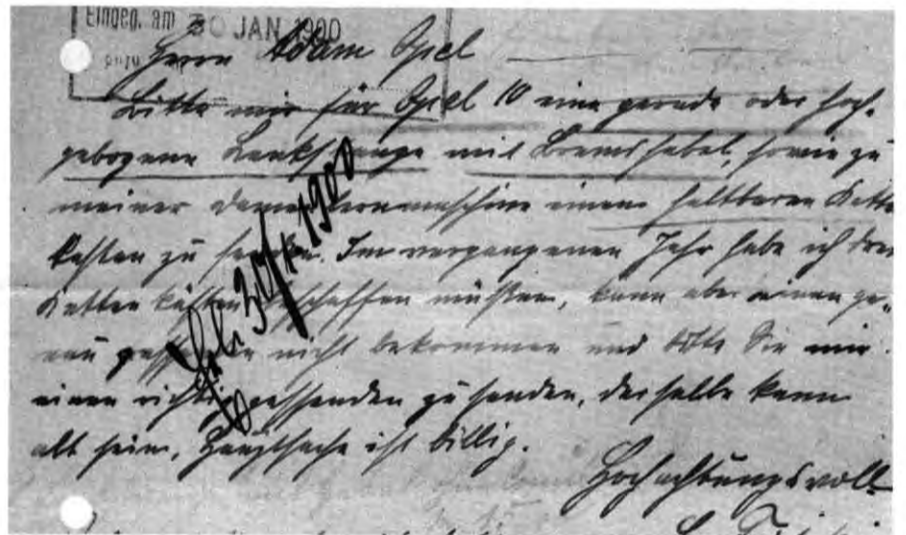 Eingeg. am 30 JAN. 1900
Herrn Adam Opel
Bitte mir für Opel 10 eine gerade oder hoch-
gebogene Lenkstange mit Bremshebel, sowie zu
meiner Damenrennmaschine einen haltbaren Kette
kasten zu senden. Im vergangenen Jahr habe ich drei
Kettenkästen beschaffen müssen, kann aber einen ge-
nau passenden nicht bekommen und bitte Sie mir
einen richtig passenden zu senden, derselbe kann
alt sein, Hauptsache ist billig.
Hochachtungsvoll
31/1. 1900